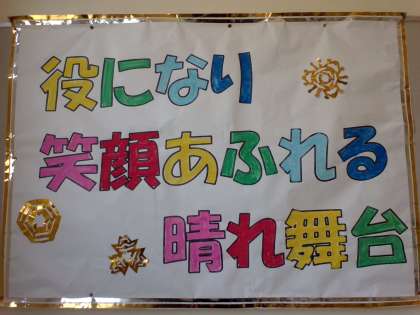 役になり
笑顔あふれる
晴れ舞台